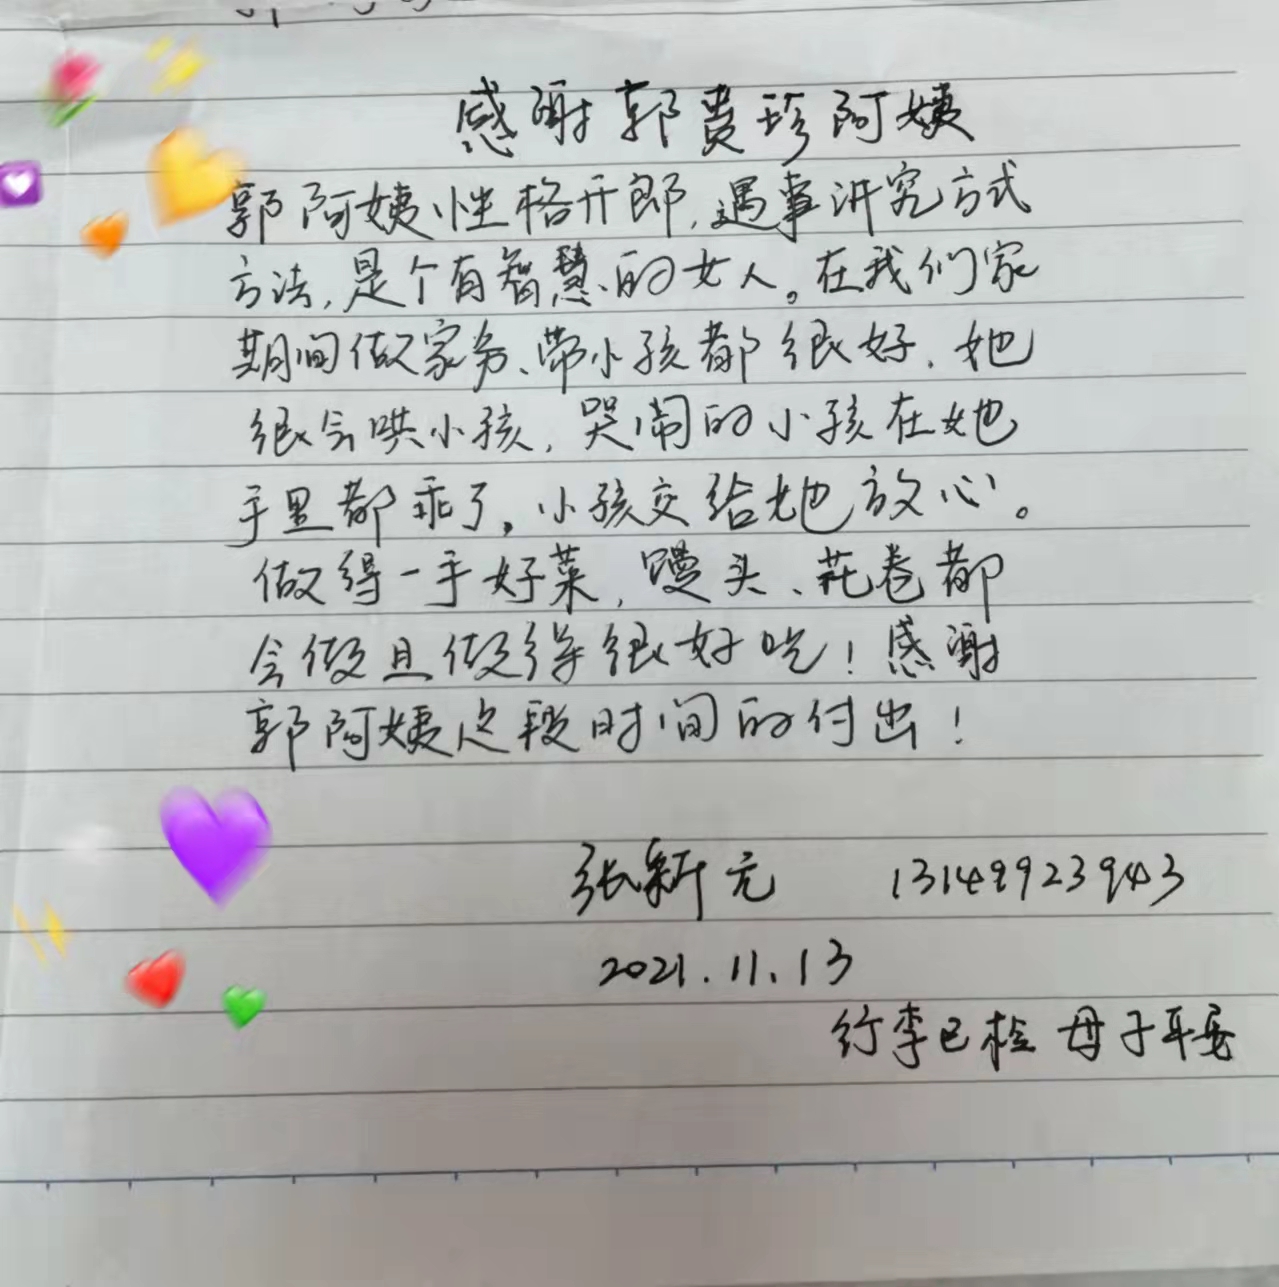 感谢郭贵珍阿姨
郭阿姨性格开郎,遇事讲究方式
方法,是个有智慧的女人。在我们家
期间做家务、带小孩都很好.她
很会哄小孩,哭闹的小孩在她
手里都乖了。小孩交给她放心。
做得一手好菜,馒头、花卷都
会做且做得很好吃!感谢
郭阿姨这段时间的付出!
张新元 13149923943
2021.11.13
行李已检 母子平安